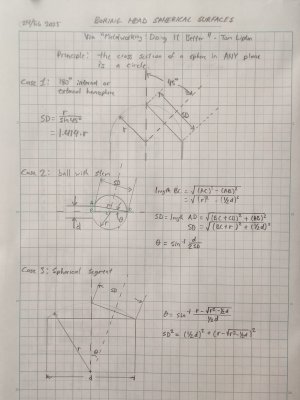 BORING HEAD SPHERICAL SURFACES
Via "Metalworking: Doing It Better" - Tom Lipton
Principle: the cross section of a sphere in ANY plane
is a circle.
Case 1: 180° internal or
external hemisphere
45°
SD = r / sin 45°
= 1.414 · r
r
SD
Case 2: ball with stem
SD
d
r
θ
length BC = √(AC)² - (AB)²
= √(r)² - (½d)²
SD = length AD = √(BC+CD)² + (AB)²
SD = √(BC+r)² + (½d)²
θ = sin⁻¹ d / 2SD
Case 3: Spherical Segment
SD
r
θ
d
θ = sin⁻¹ r - √r² - ½d / ½d
SD² = (½d)² + (r - √r² - ½d)²